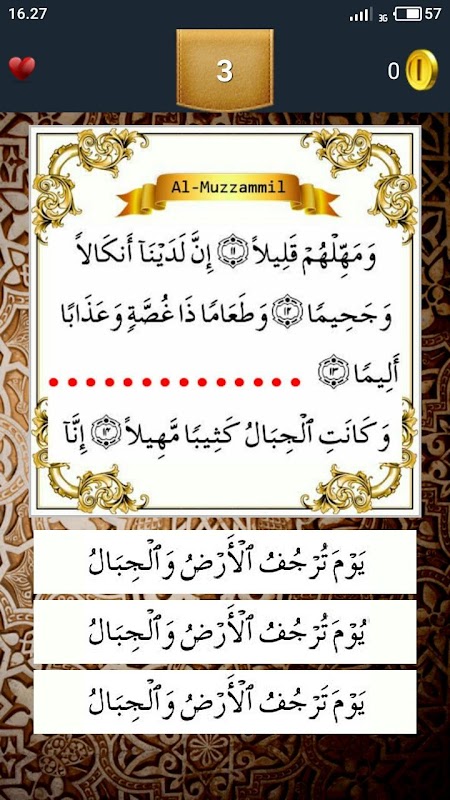 16.27 3G 57
3
0
Al-Muzzammil
وَمَهِّلْهُمْ قَلِيلاً ۝١١ إِنَّ لَدَيْنَآ أَنكَالاً
وَجَحِيمًا ۝١٢ وَطَعَامًا ذَا غُصَّةٍ وَعَذَابًا
أَلِيمًا ۝١٣ ..............
وَكَانَتِ ٱلْجِبَالُ كَثِيبًا مَّهِيلاً ۝١٤ إِنَّآ
يَوْمَ تُرْجُفُ ٱلْأَرْضُ وَٱلْجِبَالُ
يُوْمَ تُرْجُفُ ٱلْأَرْضُ وَٱلْجِبَالُ
يَوْمَ تَرْجُفُ ٱلْأَرْضُ وَٱلْجِبَالُ